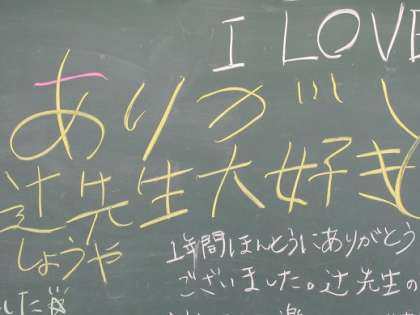 I LOVE
ありが
辻先生大好き
しょうや
1年間ほんとうにありがとう
ございました。辻先生の
した☆